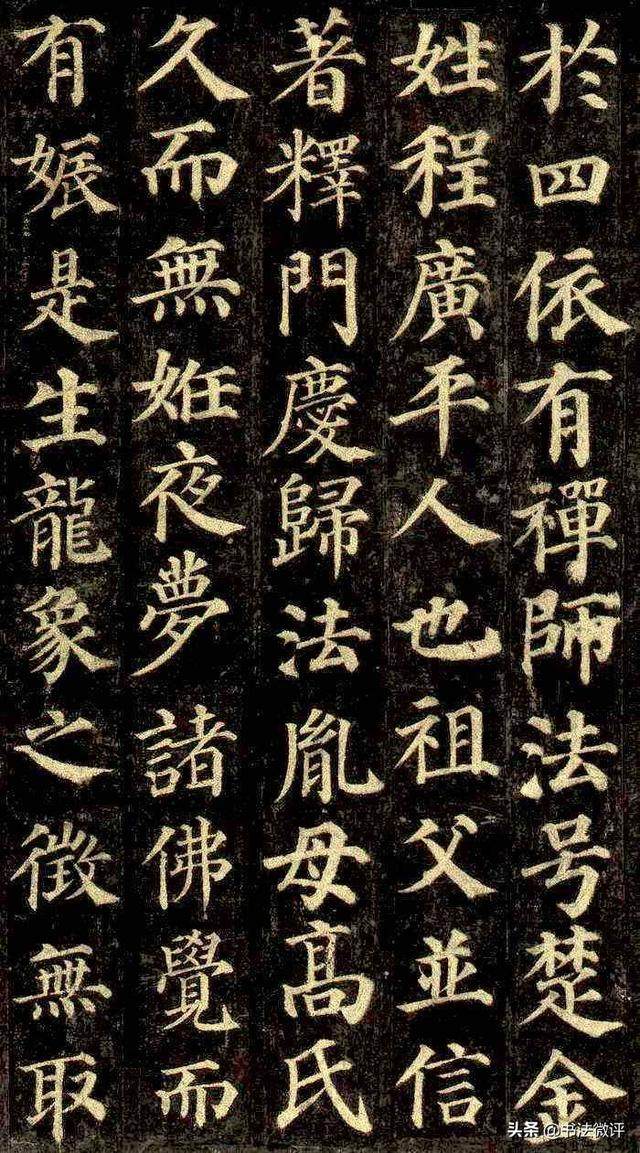 於四依有禪師法号楚金
姓程廣平人也祖父並信
著釋門慶歸法胤母高氏
久而無姙夜夢諸佛覺而
有娠是生龍象之徵無取
头条 @书法微评